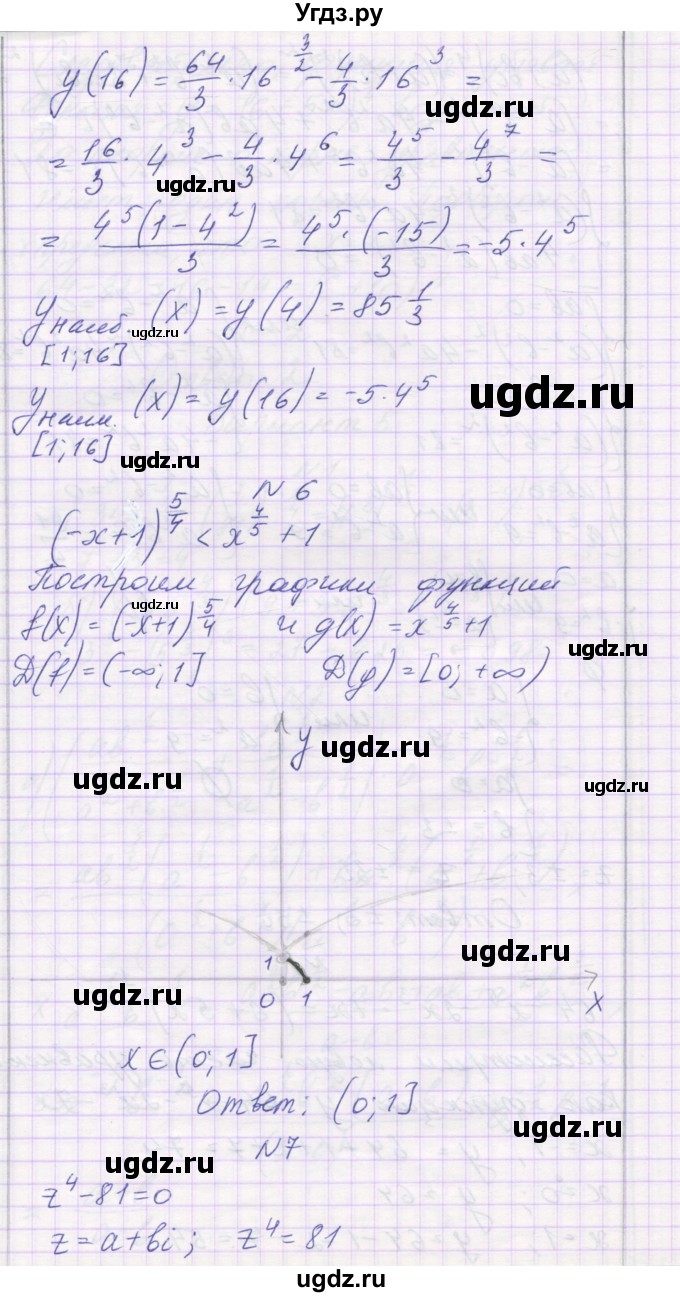 Угдз.ру
y(16) = 64/3 · 16^(3/2) - 4/3 · 16^3 =
ugdz.ru
= 16/3 · 4^3 - 4/3 · 4^6 = 4^5/3 - 4^7/3 =
ugdz.ru
ugdz.ru
= 4^5(1-4^2)/3 = 4^5·(-15)/3 = -5·4^5
y наиб. (x) = y(4) = 85 1/3
ugdz.ru
[1;16]
y наим. (x) = y(16) = -5·4^5
ugdz.ru
[1;16]
ugdz.ru
N 6
(-x+1)^(5/4) < x^(4/5) + 1
Построим графики функций
ugdz.ru
f(x) = (-x+1)^(5/4) и g(x) = x^(4/5) + 1
ugdz.ru
D(f) = (-∞; 1] D(g) = [0; +∞)
y
ugdz.ru
ugdz.ru
ugdz.ru
ugdz.ru
1
ugdz.ru
0 1 x
x ∈ (0; 1]
Ответ: (0; 1]
ugdz.ru
N7
ugdz.ru
z^4 - 81 = 0
z = a + bi ; z^4 = 81
ugdz.ru